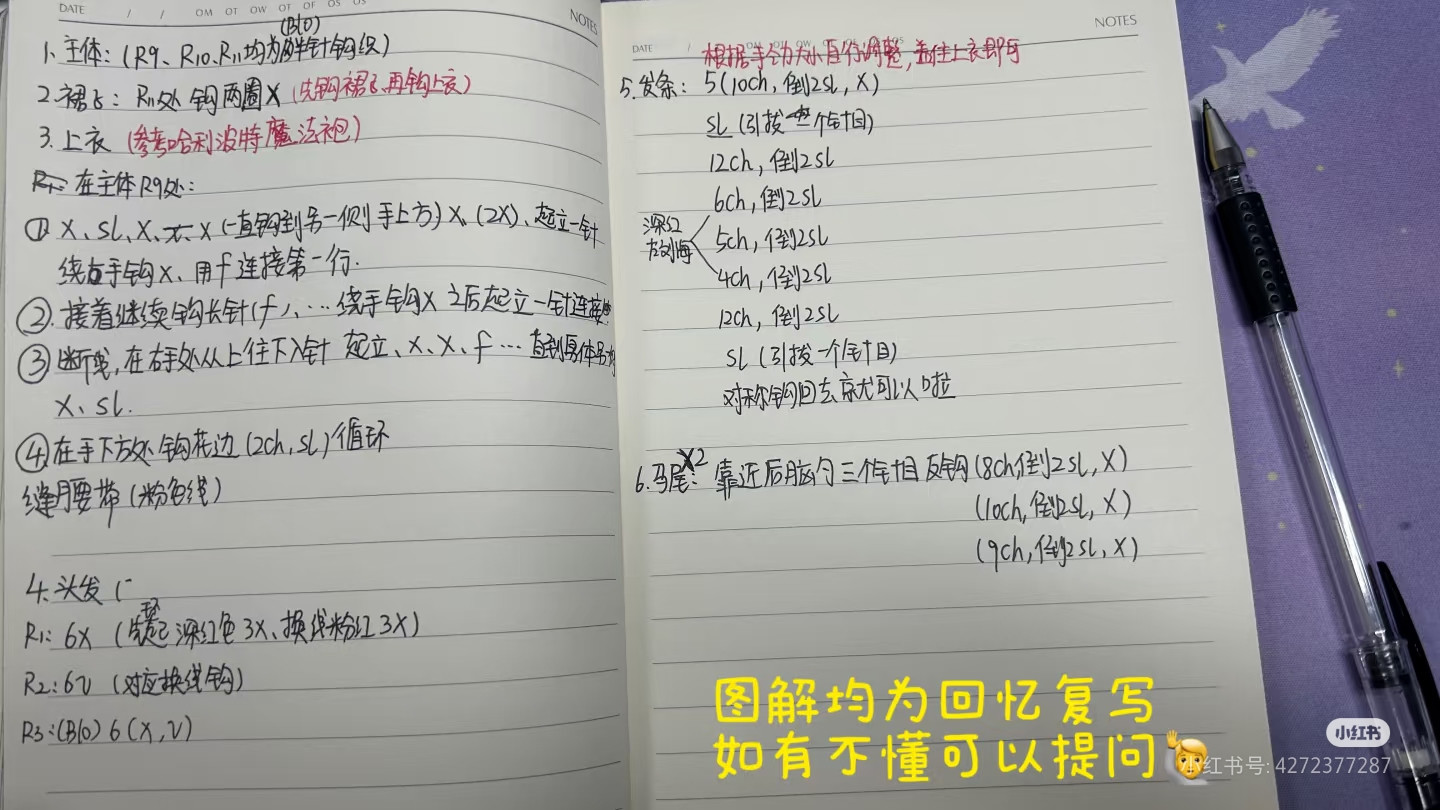 DATE / / OM OT OW OT OF OS OS
NOTES
(BLO)
1. 主体：(R9、R10、R11均为半针钩织)
2. 裙子：R11处 钩两圈X (先钩裙子、再钩上衣)
3. 上衣 (参考哈利波特魔法袍)
在主体R9处：
① X、SL、X、X (一直钩到另一侧手上方) X、(2X)、起立一针
绕右手钩X、用f连接第一行.
②. 接着继续钩长针(f)、… 绕手钩X 之后起立一针连接
③ 断线, 在右手处从上往下入针 起立、X、X、f … 直到身体另
X、SL.
④ 在手下方处钩花边 (2ch, SL) 循环
缝腰带 (粉色线)
4. 头发 (
R1: 6X (起 深红色3X、换线粉红3X)
R2: 6V (对应换线钩)
R3: (BLO) 6(X, V)
NOTES
DATE /
根据手劲大小自行调整, 盖住上衣即可
5. 发条： 5(10ch, 倒2SL, X)
SL (引拔一个针目)
12ch, 倒2SL
6ch, 倒2SL
深红
左刘海
5ch, 倒2SL
4ch, 倒2SL
12ch, 倒2SL
SL (引拔一个针目)
对称钩回去就可以啦
X2
6. 马尾： 靠近后脑勺三个针目反钩 (8ch, 倒2SL, X)
(10ch, 倒2SL, X)
(9ch, 倒2SL, X)
图解均为回忆复写
如有不懂可以提问
小红书
小红书号: 4272377287